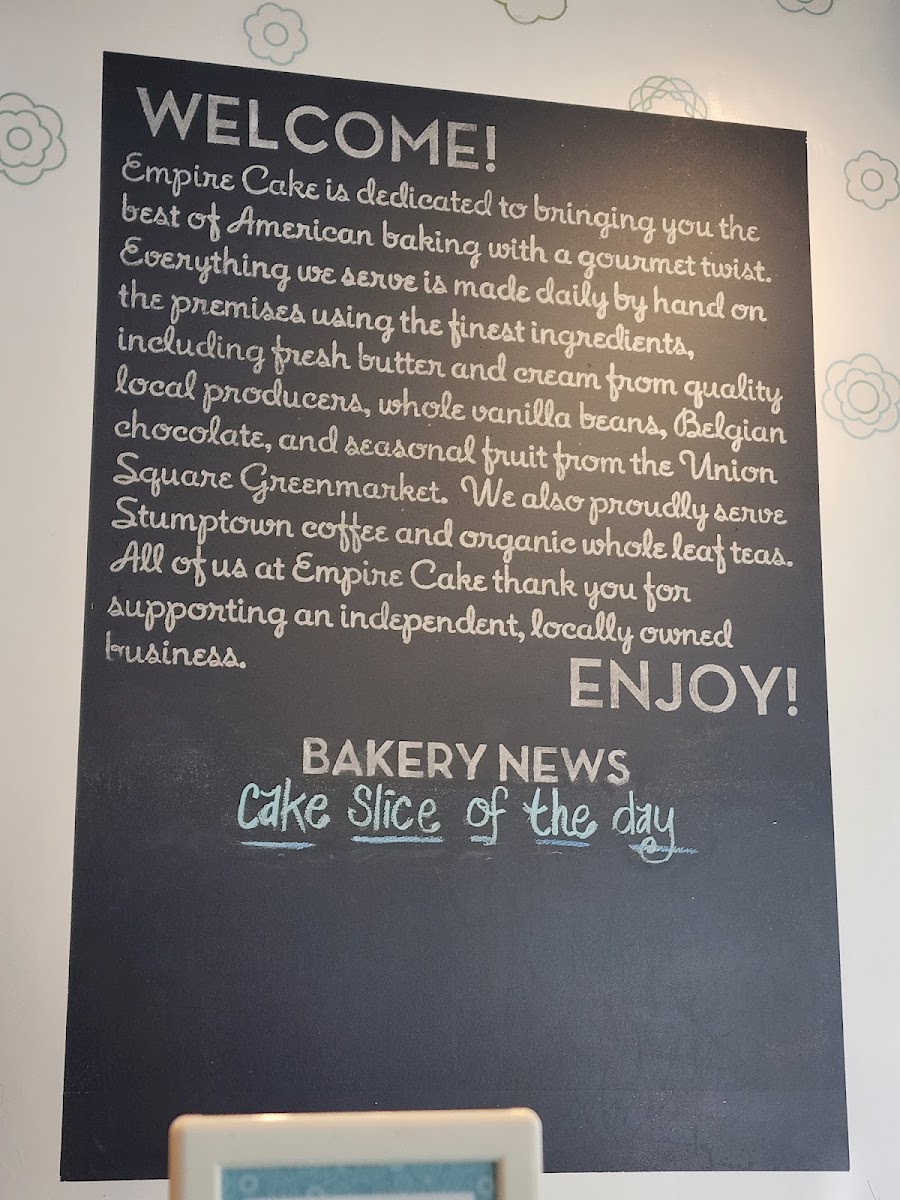 WELCOME!
Empire Cake is dedicated to bringing you the
best of American baking with a gourmet twist.
Everything we serve is made daily by hand on
the premises using the finest ingredients,
including fresh butter and cream from quality
local producers, whole vanilla beans, Belgian
chocolate, and seasonal fruit from the Union
Square Greenmarket. We also proudly serve
Stumptown coffee and organic whole leaf teas.
All of us at Empire Cake thank you for
supporting an independent, locally owned
business.
ENJOY!
BAKERY NEWS
Cake Slice of the day